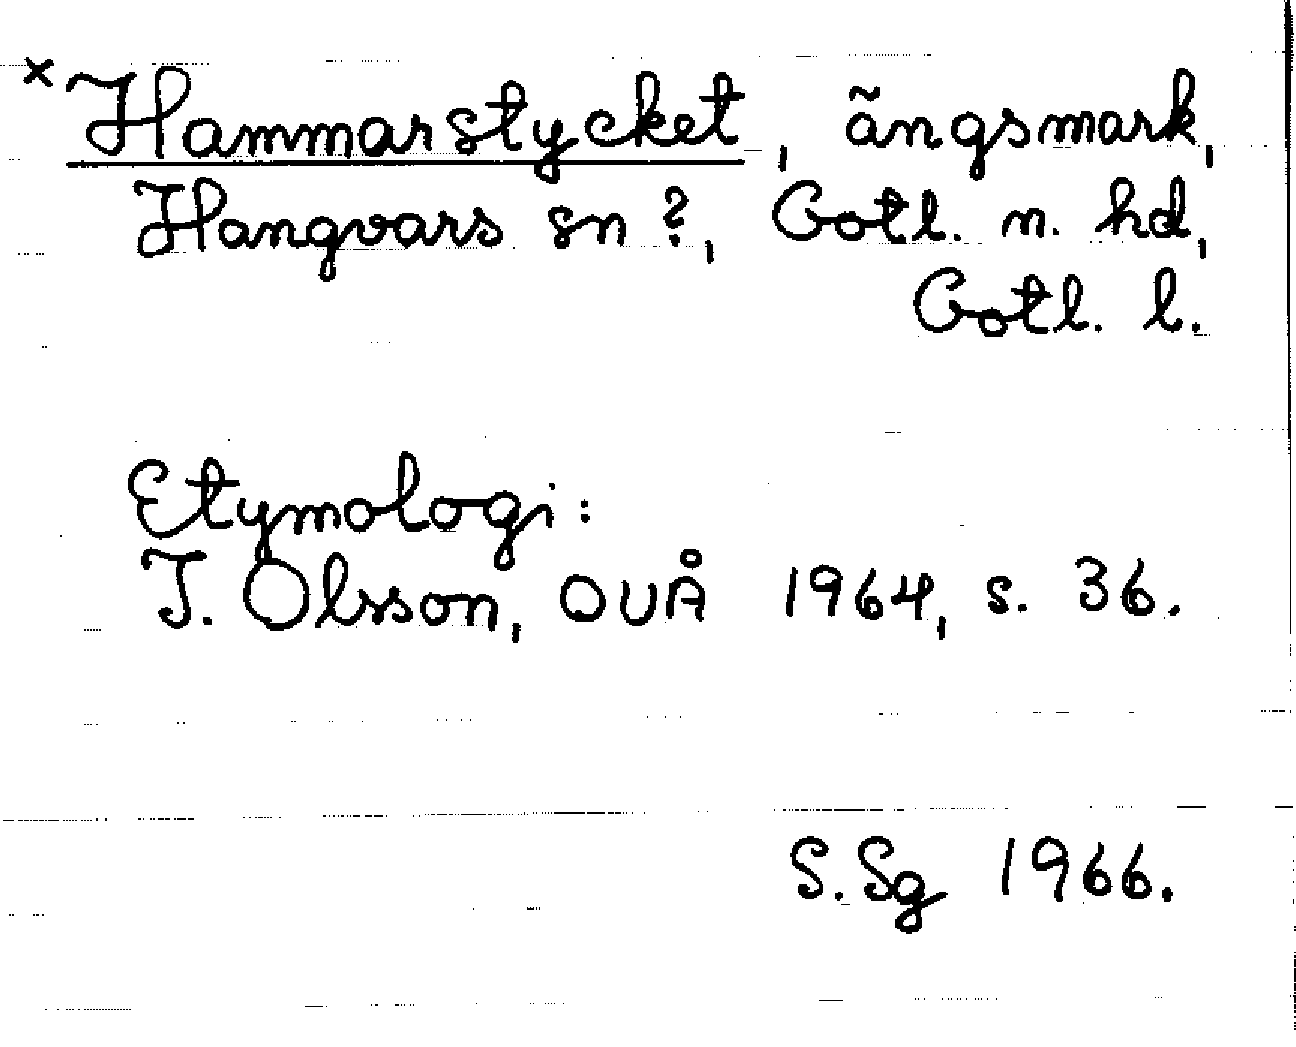 x Hammarstycket, ängsmark,
Hangvars sn?, Gotl. n. hd,
Gotl. l.
Etymologi:
I. Olsson, OUÅ 1964, s. 36.
S. Sg 1966.